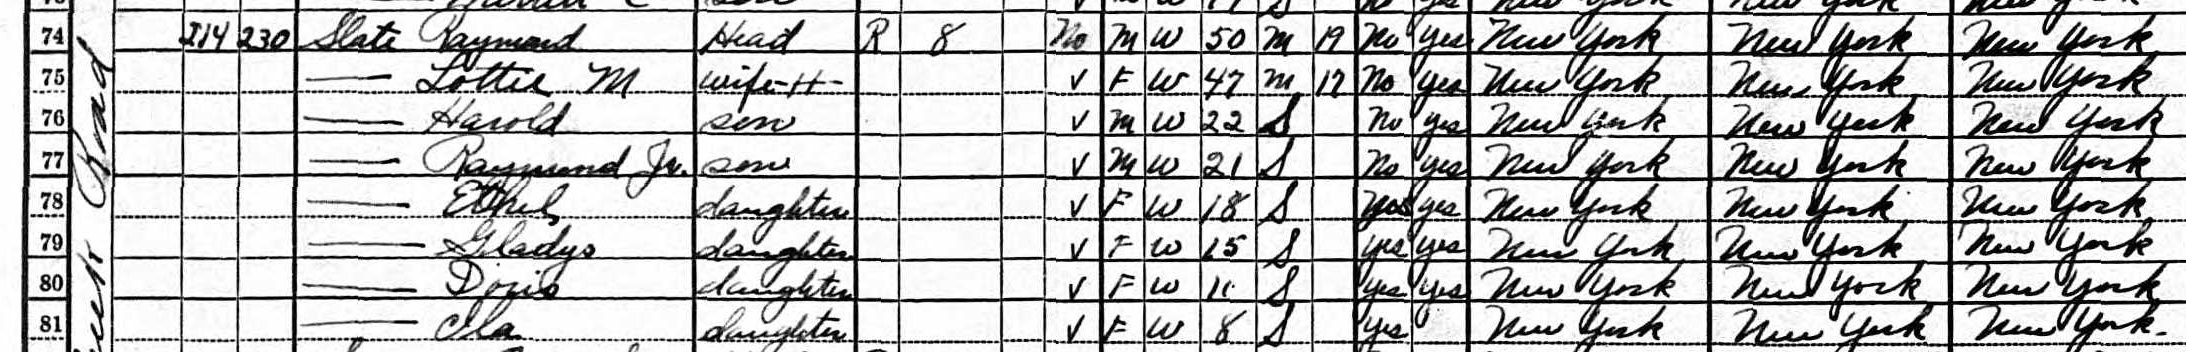 son M W 17 S No yes New York New York New York
74 214 230 Slate Raymond Head R 8 No M W 50 M 19 No yes New York New York New York
75 — Lottie M wife-H- ✓ F W 47 M 17 No yes New York New York New York
76 — Harold son ✓ M W 22 S No yes New York New York New York
77 — Raymond Jr. son ✓ M W 21 S No yes New York New York New York
78 — Ethel daughter ✓ F W 18 S yes yes New York New York New York
79 — Gladys daughter ✓ F W 15 S yes yes New York New York New York
80 — Doris daughter ✓ F W 11 S yes yes New York New York New York
81 — Ila daughter ✓ F W 8 S yes New York New York New York
Road